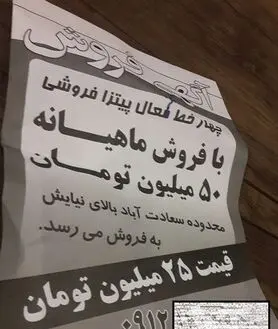 آگهی فروش
چهار خط فعال پیتزا فروشی
با فروش ماهیانه
۵۰ میلیون تومان
محدوده سعادت آباد بالای نیایش
به فروش می رسد.
قیمت ۲۵ میلیون تومان
۰۹۱۲